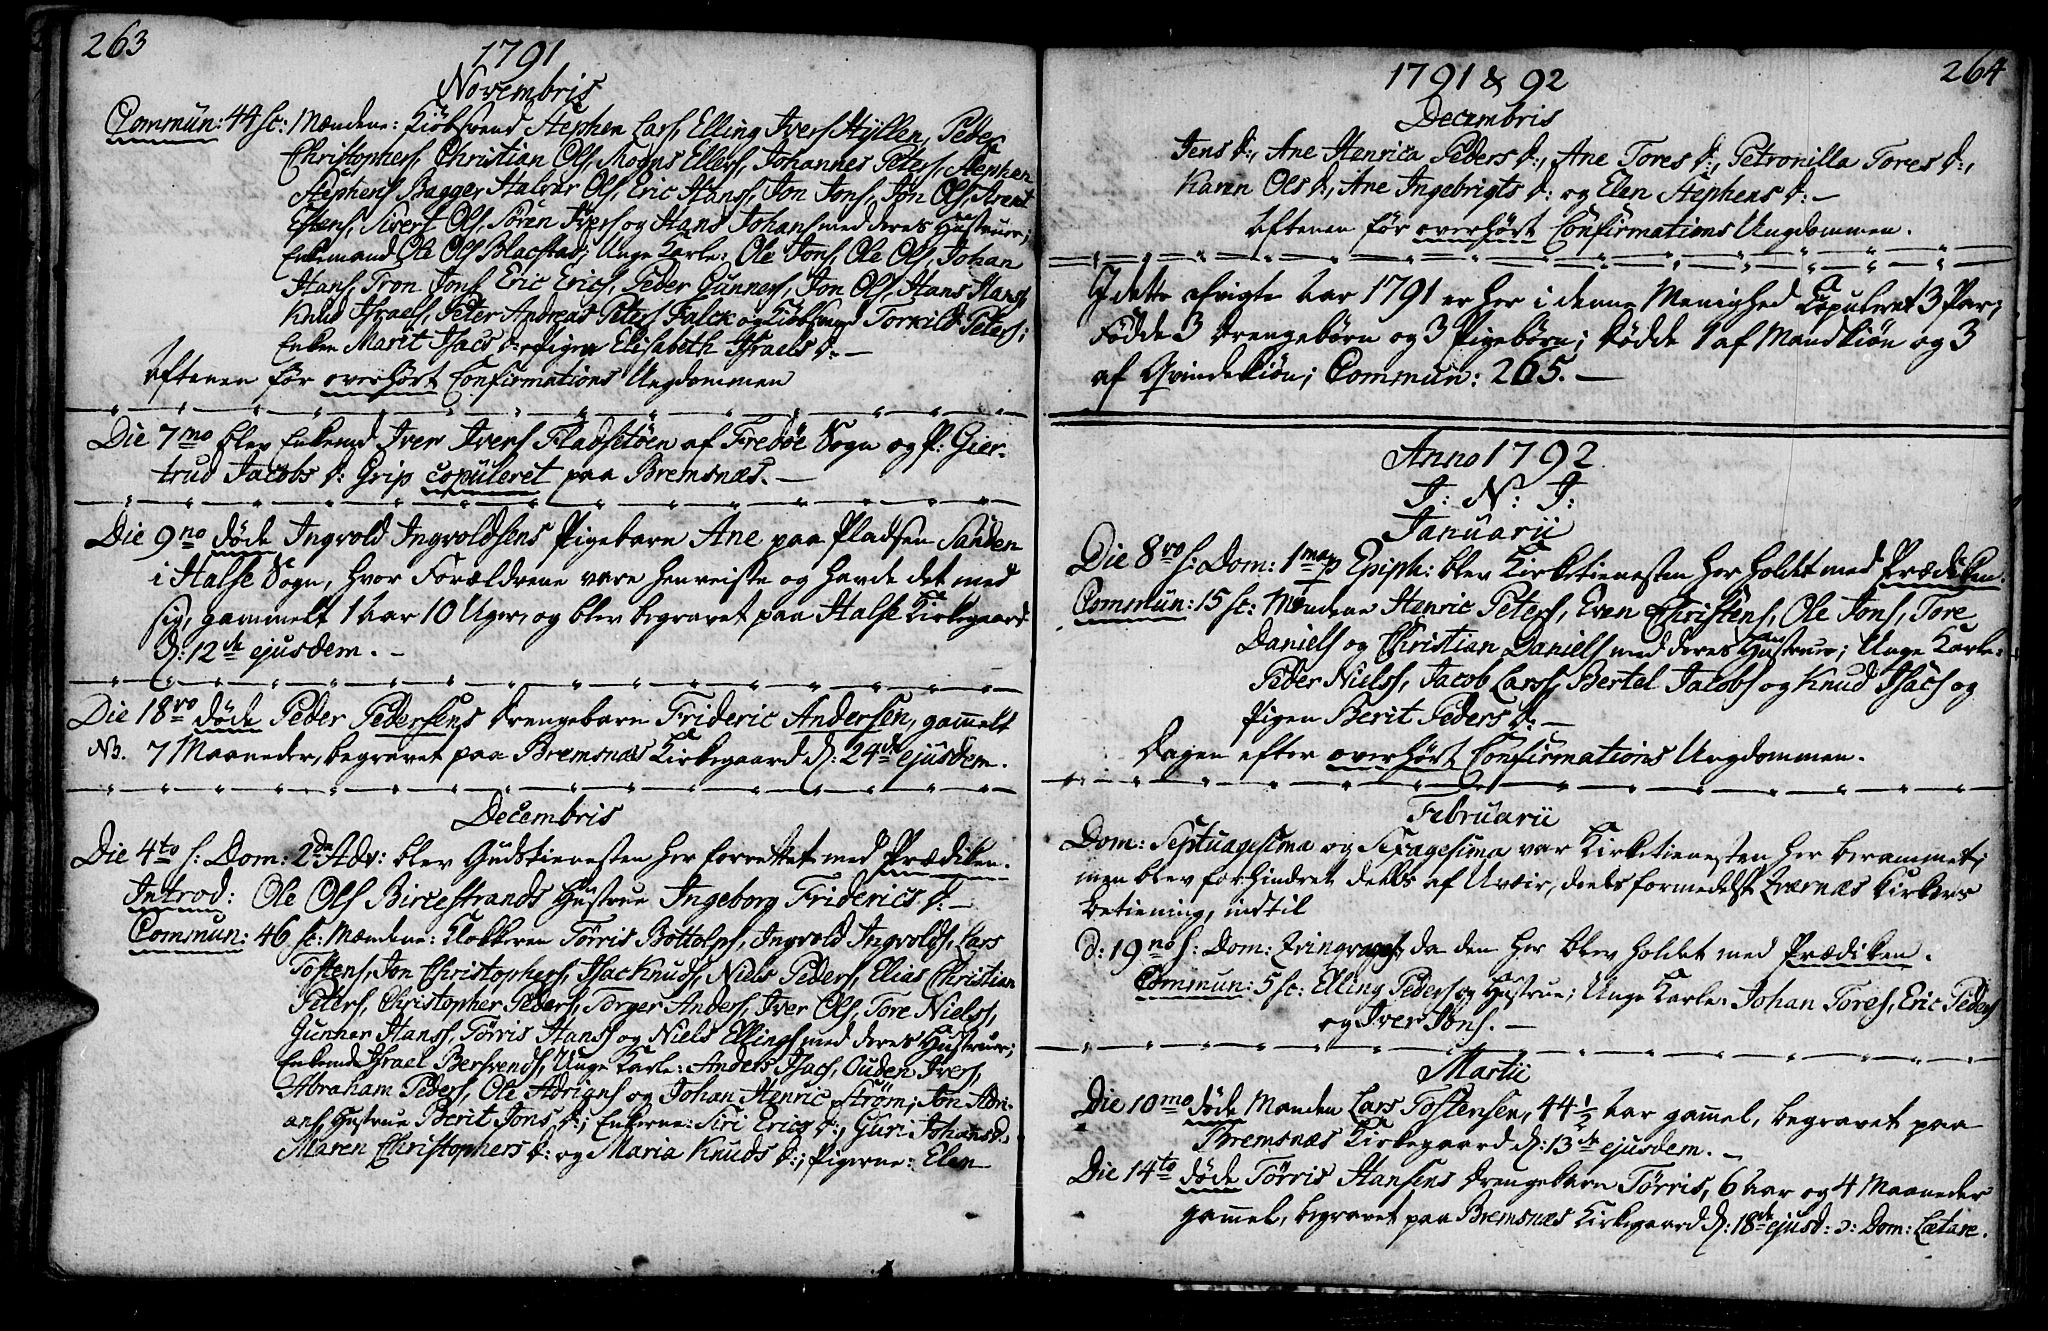 263
1791
Novembris
Commun: 44 sc: Mændene: Kiøbsvend Stephen Lars, Elling Ivers Hÿllen, Peder
Christophers, Christian Ols, Mogns Ellers, Johannes Peters, Stephen
Stephens Bagger, Halvar Ols, Eric Hans, Jon Jons, Jon Ols, Arent
Estens, Sivert Ols, Sören Ivers og Hans Johans med deres Hustruer;
Enkemand Ole Ols Blacstad; Unge Karle: Ole Jons, Ole Ols, Johan
Hans, Tron Jons, Eric Erics, Peder Gunners, Jon Ols, Hans Hans,
Knud Israels, Peter Andreas Peters Falck og Kiøbsvend Torkild Peters;
Enken Marit Isacs d: Pigen Elisabeth Israels d: —
Aftenen før overhørt Confirmations Ungdommen
Die 7mo blev Enkemd Iver Ivers Fladsetöen af Fredöe Sogn og P: Gier-
trud Jacobs d: Grip copuleret paa Bremsnæs. —
Die 9no døde Ingvold Ingvoldsens Pigebarn Ane paa Pladsen Sanden
i Halse Sogn, hvor Forældrene vare henreiste og havde det med
sig, gammelt 1 Aar 10 Uger, og blev begravet paa Halse Kirkegaard
d: 12te ejusdem. —
Die 18vo døde Peder Pedersens Drengebarn Frideric Andersen, gam̄elt
NB. 7 Maaneder, begravet paa Bremsnæs Kirkegaard d: 24de ejusdem.
Decembris
Die 4to s: Dom: 2da Adv: blev Gudstienesten her forrettet med Prædiken.
Introd: Ole Ols Bircestrands Hustrue Ingeborg Friderics d: —
Commun: 46 sc: Mændene: Klokkeren Törris Bottolps, Ingvold Ingvolds, Lars
Tostens, Jon Christophers, Isac Knuds, Niels Peders, Elias Christian
Peters, Christopher Peders, Torger Anders, Iver Ols, Tore Niels,
Gunner Hans, Törris Hans og Niels Ellings med deres Hustruer;
Enkemd Israel Bersvends, Unge Karle: Anders Isacs, Ouden Ivers,
Abraham Peders, Ole Adrians og Johan Henric Strøm; Jon Adri-
ans Hustrue Berit Jons d:; Enkerne: Siri Erics d:, Guri Johans d:
Maren Christophers d: og Maria Knuds d:; Pigerne: Elen
264
1791 & 92
Decembris
Jens d:, Ane Henrica Peders d:, Ane Tores d:, Petronilla Tores d:,
Karen Ols d:, Ane Ingebrigts d: og Elen Stephens d: —
Aftenen før overhørt Confirmations Ungdommen.
I dette afvigte Aar 1791 er her i denne Menighed Copuleret 3 Par;
Fødde 3 Drengebørn og 3 Pigebørn; Dødde 1 af Mandkiøn og 3
af Qvindekiøn; Commun: 265. —
Anno 1792
I: N: J:
Januarii
Die 8vo s: Dom: 1ma p Epiph: blev Kirketienesten her holdet med Prædiken.
Commun: 15 sc: Mændene Henric Peters, Even Christens, Ole Jons, Tore
Daniels og Christian Daniels med deres Hustruer; Unge Karle:
Peder Niels, Jacob Lars, Bertel Jacobs og Knud Isacs og
Pigen Berit Peders d: —
Dagen efter overhørt Confirmations Ungdommen.
Februarii
Dom: Septuagesima og Sexagesima var Kirketienesten her berammet;
men blev forhindret deels af Uveir, deels formedelst Qværnæs Kirkers
betiening, indtil
D: 19no s: Dom: Qvinqvages: da den her blev holdet med Prædiken.
Commun: 5 sc: Elling Peders og Hustrue; Unge Karle: Johan Tores, Eric Peders
og Iver Jons. —
Martii
Die 10mo døde Manden Lars Tostensen, 44 1/2 Aar gam̄el, begravet paa
Bremsnæs Kirkegaard d: 13de ejusdem. —
Die 14to døde Törris Hansens Drengebarn Törris, 6 Aar og 4 Maaneder
gam̄el, begravet paa Bremsnæs Kirkegaard d: 18de ejusd: ɔ: Dom: Lætare.